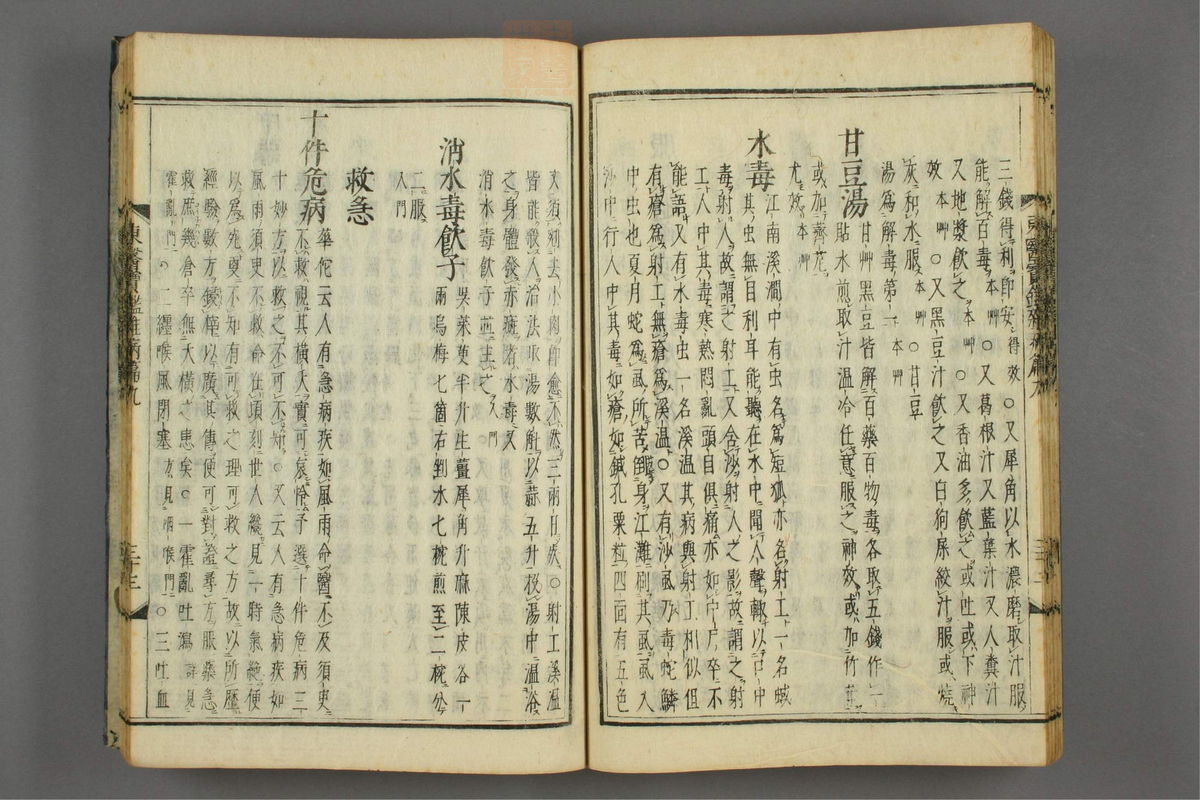 三錢得利即安得效○又犀角以水濃磨取汁服
能解百毒本艸○又葛根汁又藍葉汁又人糞汁
又地漿飲之本艸○又香油多飲之或吐或下神
效本艸○又黑豆汁飲之又白狗屎絞汁服或燒
灰和水服本艸○甘豆
湯爲解毒第一本艸
甘豆湯
甘艸黑豆皆解百藥百物毒各取五錢作一
貼水煎取汁温冷任意服之神效或加竹葉
或加薺苨
尤效本艸
水毒
江南溪澗中有虫名爲短狐亦名射工一名蜮
其虫無目利耳能聽在水中聞人聲輒以口中
毒射人故謂之射工又含沙射人之影故謂之射
工人中其毒寒熱悶亂頭目俱痛亦如中尸卒不
能語又有水毒虫一名溪温其病與射工相似但
有瘡爲射工無瘡爲溪温○又有沙虱乃毒蛇鱗
中虫也夏月蛇爲虱所苦倒身江灘刷其虱虱入
沙中行人中其毒如瘡如鍼孔粟粒四面有五色
文須剜去小肉即愈不然三兩日死○射工溪温
皆能殺人治法取湯數斛以蒜五升投湯中温浴
之身體發赤斑者水毒又
消水毒飲子煎主之入門
消水毒飲子
吳茱萸半升生薑犀角升麻陳皮各一
兩烏梅七箇右剉水七椀煎至二椀分
二服
入門
救急
十件危病
華佗云人有急病疾如風雨命醫不及須臾
不救視其橫夭實可哀怜予選十件危病三
十妙方以救之不可不知○又云人有急病疾如
風雨須臾不救命在頃刻世人纔見一時氣絶便
以爲死更不知有可救之理可救之方故以所歷
經驗數方鏤梓以廣其傳使可對證尋方服藥急
救庶幾倉卒無夭橫之患矣○一霍亂吐瀉方見
霍亂門○二纏喉風閉塞方見咽喉門○三吐血
東醫寶鑑雜病篇九